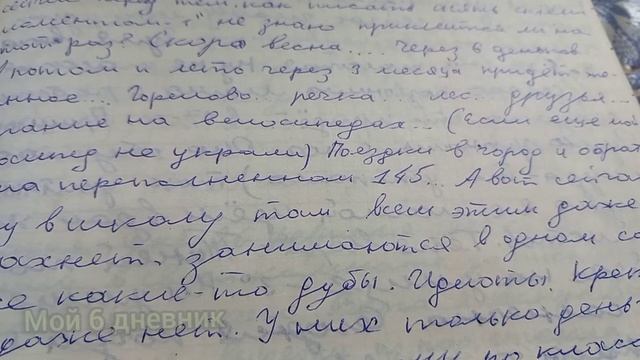 не знаю приключится ли на
раз? Скоро весна... через 6 деньков
потом и лето через 3 месяца придёт
Горелово. речка. лес. друзья...
на велосипедах... (Если еще мой
не украли) Поездки в город и обрат
на переполненном 145... А вот сейчас
у в школу там всем этим даже
ахнет. занимаются в одном
какие-то дубы. Идиоты. Креп
даже нет. У них только день
по класс
Мой 6 дневник